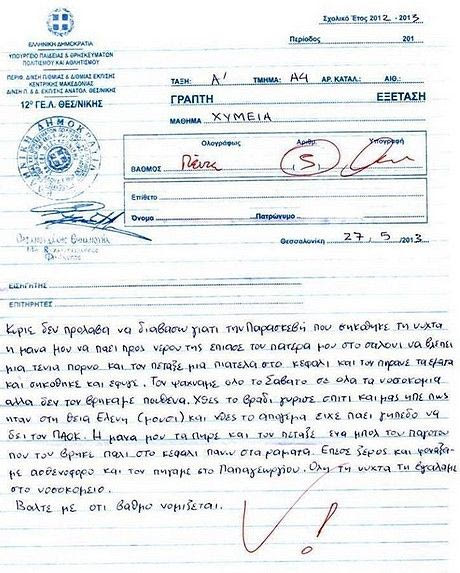 Σχολικό Έτος 2012 - 2013
Περίοδος 201
ΕΛΛΗΝΙΚΗ ΔΗΜΟΚΡΑΤΙΑ
ΥΠΟΥΡΓΕΙΟ ΠΑΙΔΕΙΑΣ & ΘΡΗΣΚΕΥΜΑΤΩΝ
ΠΟΛΙΤΙΣΜΟΥ ΚΑΙ ΑΘΛΗΤΙΣΜΟΥ
ΠΕΡΙΦ. Δ/ΝΣΗ Π/ΘΜΙΑΣ & Δ/ΘΜΙΑΣ ΕΚΠ/ΣΗΣ
ΚΕΝΤΡΙΚΗΣ ΜΑΚΕΔΟΝΙΑΣ
Δ/ΝΣΗ Π. & Δ. ΕΚΠ/ΣΗΣ ΑΝΑΤΟΛ. ΘΕΣ/ΝΙΚΗΣ
12º ΓΕ.Λ. ΘΕΣ/ΝΙΚΗΣ
ΤΑΞΗ: Α' ΤΜΗΜΑ: Α4 ΑΡ. ΚΑΤΑΛ.: ΑΙΘ.:
ΓΡΑΠΤΗ ΕΞΕΤΑΣΗ
ΜΑΘΗΜΑ ΧΥΜΕΙΑ
Ολογράφως Αριθμ. Υπογραφή
ΒΑΘΜΟΣ Πέντε 5
Επίθετο
Όνομα Πατρώνυμο
Θεσσαλονίκη 27, 5 /2013
ΕΙΣΗΓΗΤΗΣ
ΕΠΙΤΗΡΗΤΕΣ
Κυριε δεν προλαβα να διαβασω γιατι την Παρασκεβή που σηκόθηκε τη νυχτα
η μανα μου να παει προς νερου της επιασε τον πατερα μου στο σαλονι να βλεπει
μια τενια πορνο και τον πεταξε μια πιατελα στο κεφαλι και τον πηρανε τα εματα
και σηκοθηκε και εφυγε. Τον ψαχναμε ολο το Σαβατο σε ολα τα νοσοκομια
αλλα δεν τον βρηκαμε πουθενα. Χθες το βραδι γυρισε σπιτι και μας ηπε πως
ηταν στη θεια Ελενη (μουσι) και χθες το απογεμα ειχε παει γηπεδο να
δει τον ΠΑΟΚ. Η μανα μου τα πηρε και τον πεταξε ενα μπολ του παγοτου
που τον βρηκε παλι στο κεφαλι πανω στα ραματα. Επεσε ξερος και φοναξαμε
ασθενοφορο και τον πηγαμε στο Παπαγεωργιου. Ολη τη νυχτα τη εγαλαμε
στο νοσοκομειο.
Βαλτε με οτι βαθμο νομιζεται.